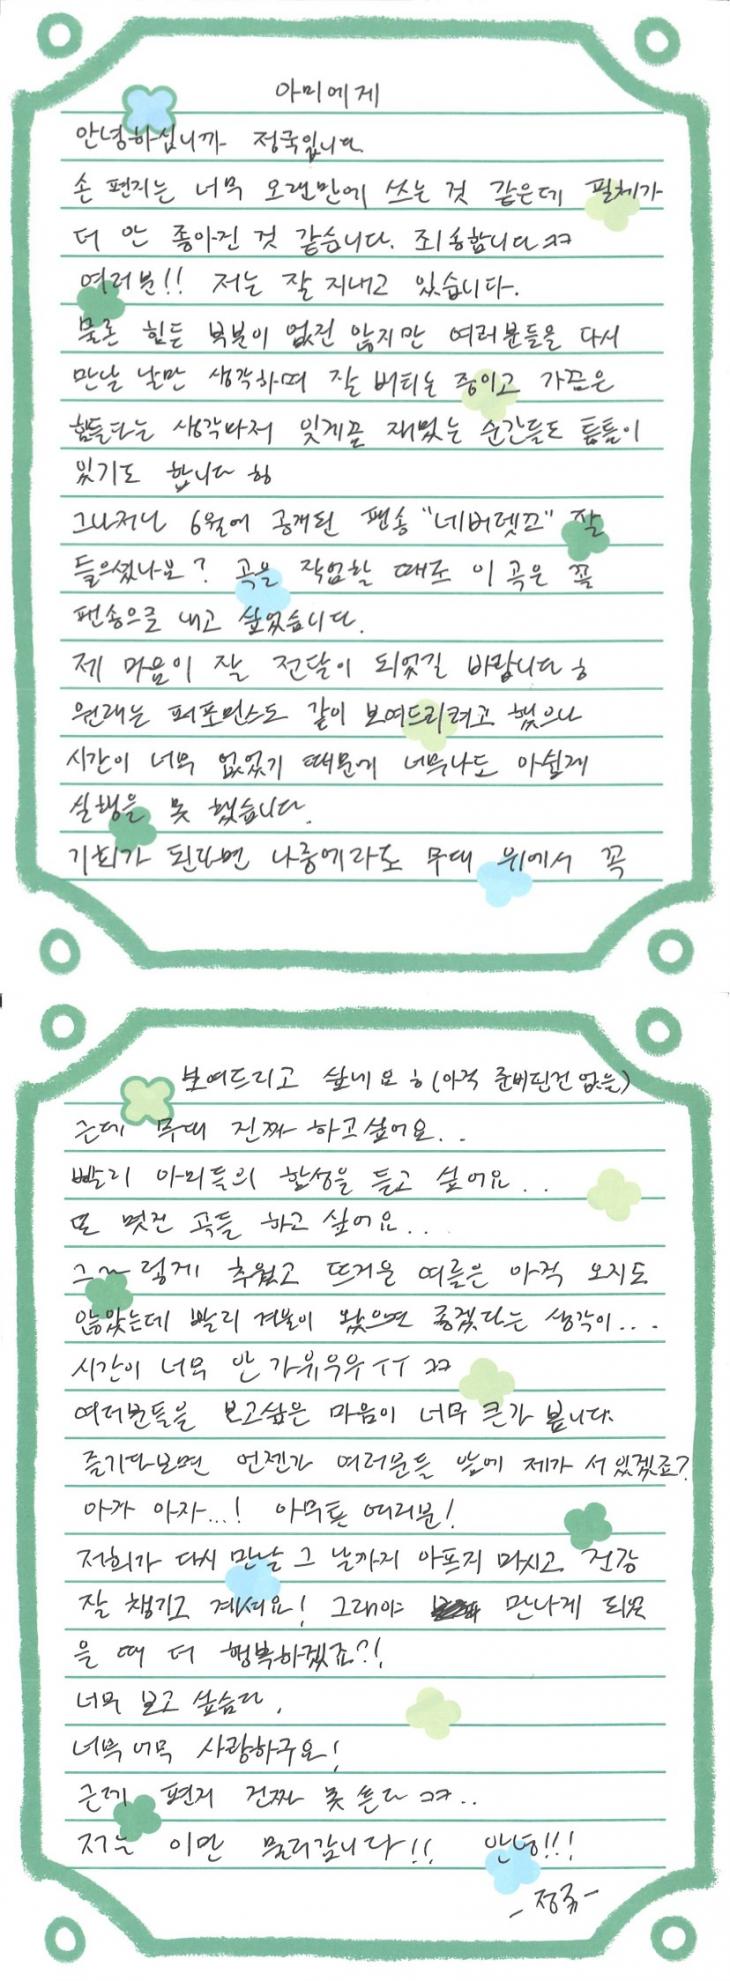 아미에게
안녕하십니까 정국입니다.
손 편지는 너무 오랜만에 쓰는 것 같은데 필체가
더 안 좋아진 것 같습니다. 죄송합니다ㅋㅋ
여러분!! 저는 잘 지내고 있습니다.
물론 힘든 부분이 없진 않지만 여러분들을 다시
만날 날만 생각하며 잘 버티는 중이고 가끔은
힘들다는 생각마저 잊게끔 재밌는 순간들도 틈틈이
있기도 합니다 ㅎ
그나저나 6월에 공개된 팬송 "네버렛고" 잘
들으셨나요? 곡을 작업할 때도 이 곡은 꼭
팬송으로 내고 싶었습니다.
제 마음이 잘 전달이 되었길 바랍니다 ㅎ
원래는 퍼포먼스도 같이 보여드리려고 했으나
시간이 너무 없었기 때문에 너무나도 아쉽게
실행을 못 했습니다.
기회가 된다면 나중에라도 무대 위에서 꼭
보여드리고 싶네요 ㅎ (아직 준비된건 없음)
근데 무대 진짜 하고싶어요..
빨리 아미들의 함성을 듣고 싶어요...
또 멋진 곡들 하고 싶어요...
그~렇게 추웠고 뜨거운 여름은 아직 오지도
않았는데 빨리 겨울이 왔으면 좋겠다는 생각이...
시간이 너무 안 가유우우ㅜㅜ ㅋㅋ
여러분들을 보고싶은 마음이 너무 큰가 봅니다.
즐기다보면 언젠가 여러분들 앞에 제가 서 있겠죠?
아자 아자...! 아무튼 여러분!
저희가 다시 만날 그 날까지 아프지 마시고 건강
잘 챙기고 계셔요! 그래야 만나게 되었
을 때 더 행복하겠죠?!
너무 보고 싶습다.
너무너무 사랑하구요!
근데 편지 진짜 못 쓴다 ㅋㅋ..
저는 이만 물러갑니다!! 안녕!!!
-정국-